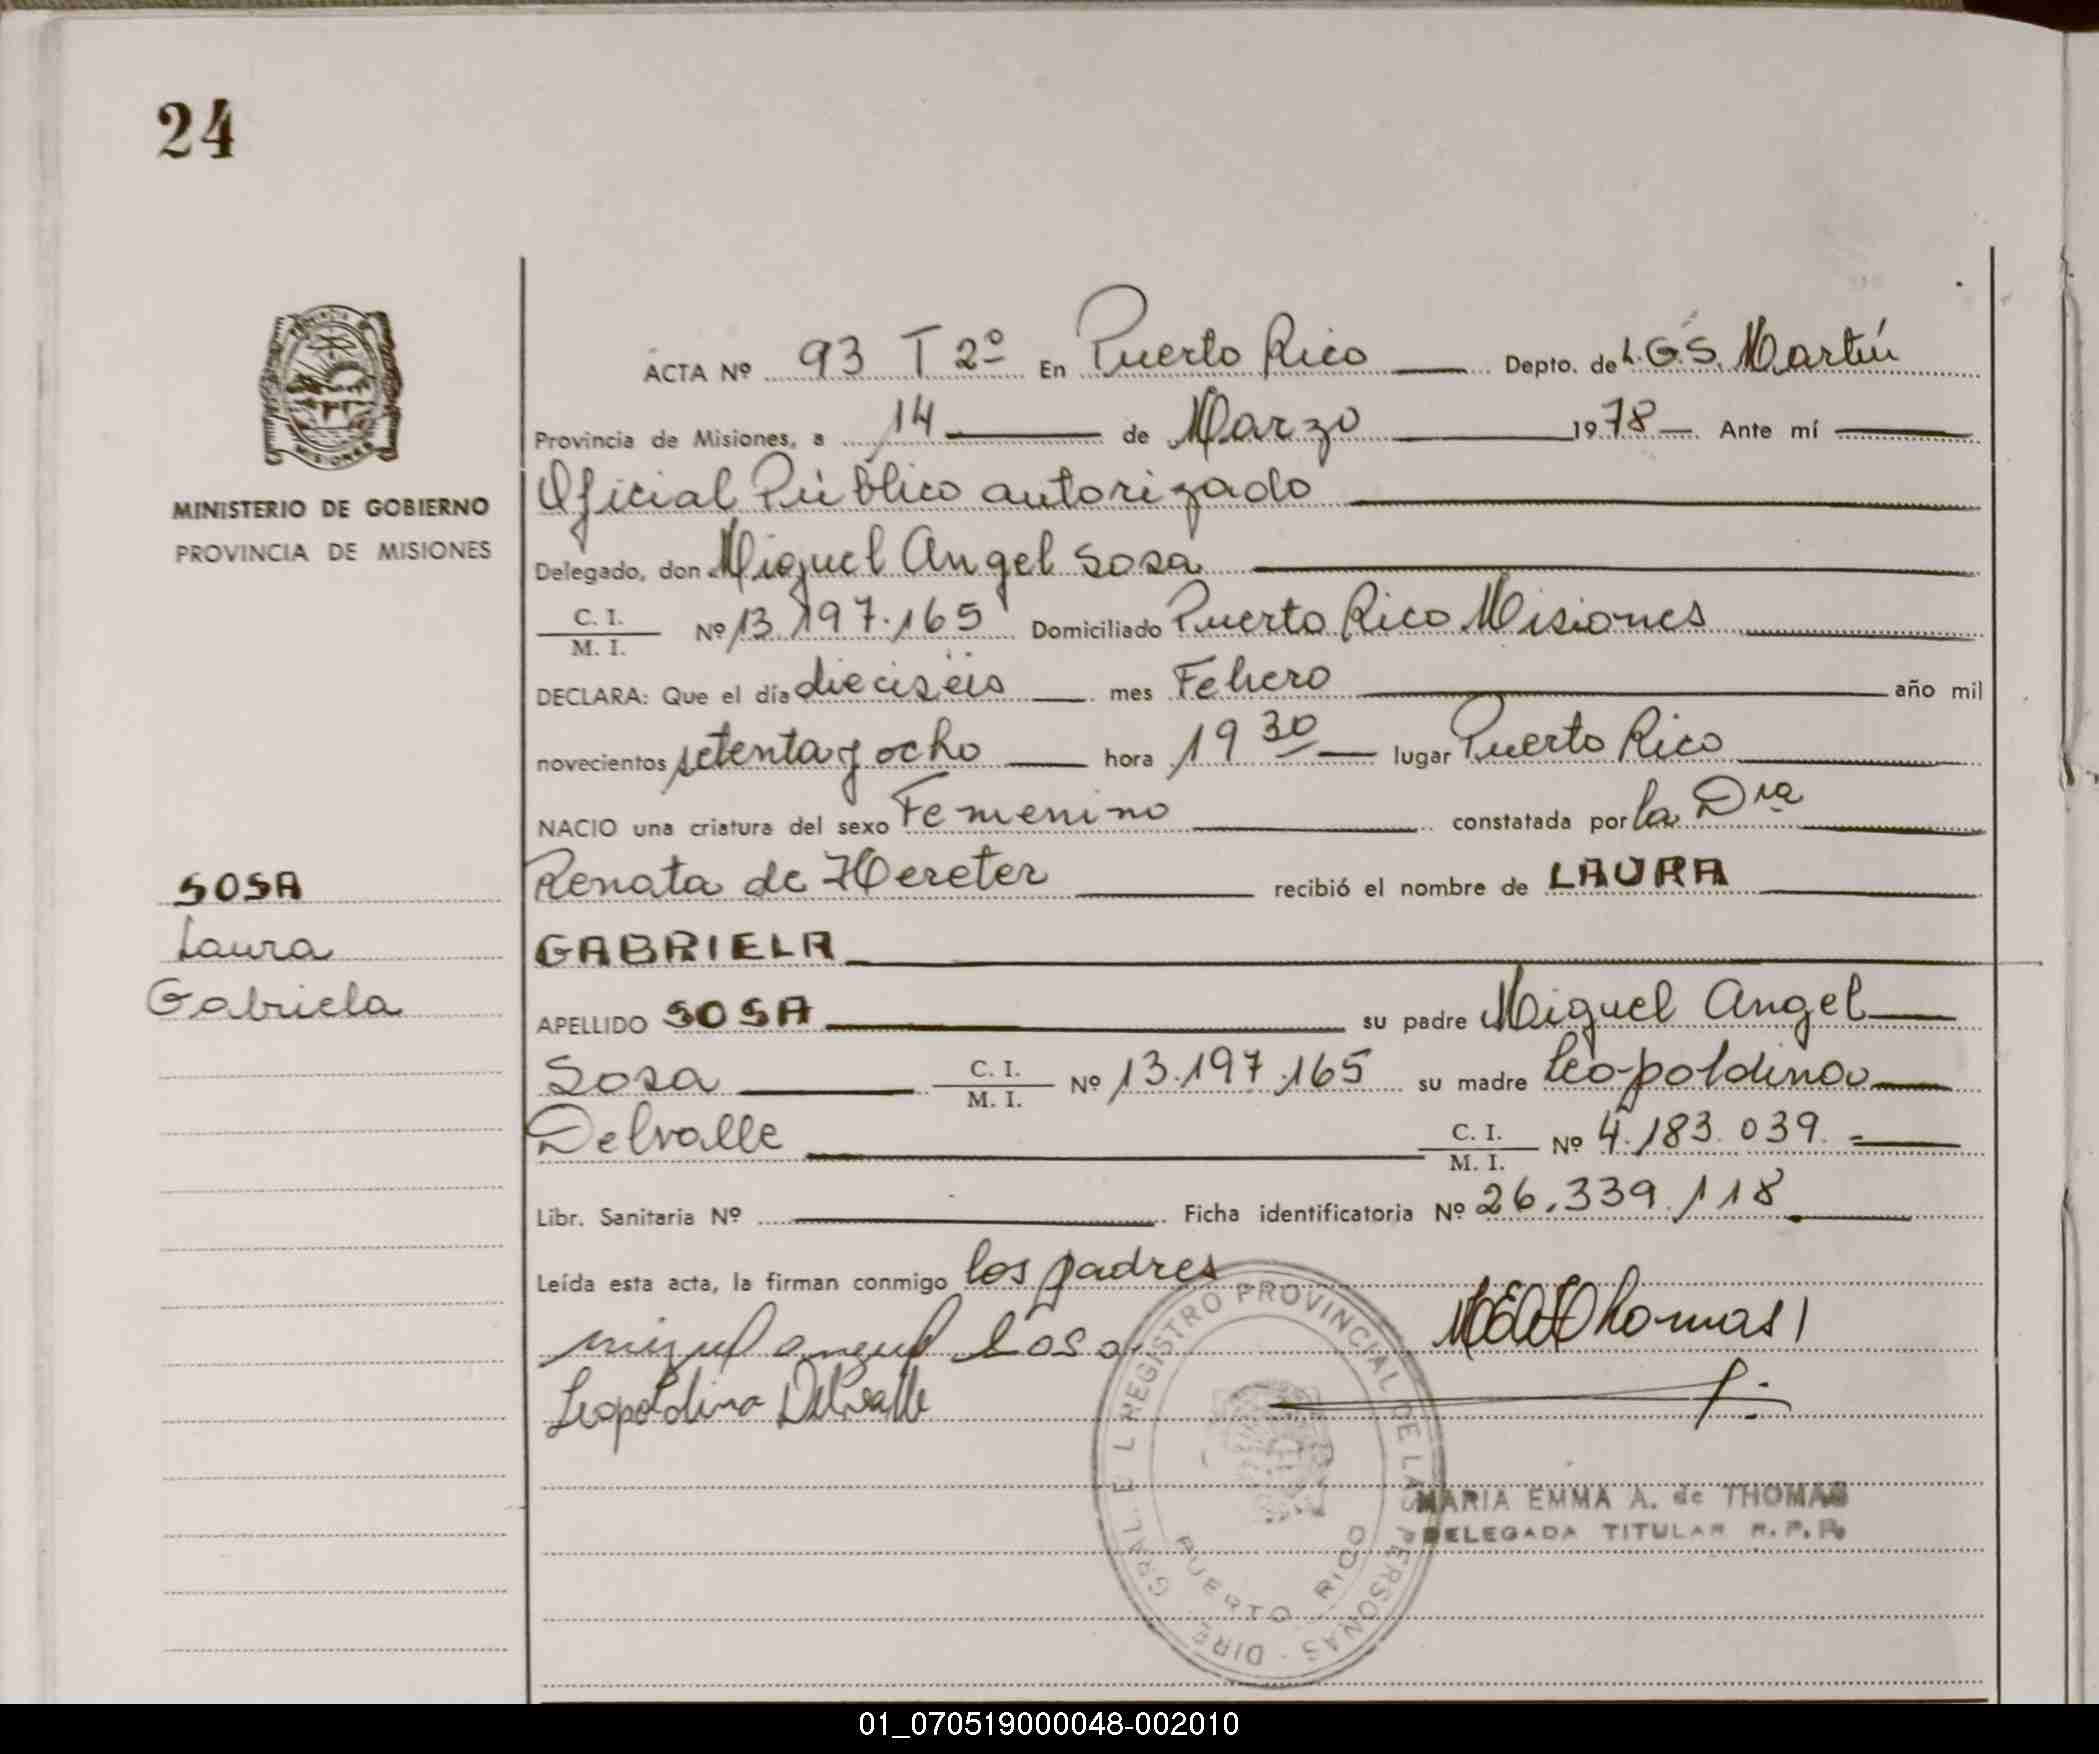 24
MINISTERIO DE GOBIERNO
PROVINCIA DE MISIONES
ACTA Nº 93 T 2º En Puerto Rico Depto. de L.G.S. Martín
Provincia de Misiones, a 14 de Marzo 1978 Ante mí
Oficial Público autorizado
Delegado, don Miguel Angel Sosa
C. I. / M. I. Nº 13.197.165 Domiciliado Puerto Rico Misiones
DECLARA: Que el día dieciséis mes Febrero año mil
novecientos setenta y ocho hora 19 30 lugar Puerto Rico
NACIO una criatura del sexo Femenino constatada por la Dra
Renata de Hereter recibió el nombre de LAURA
GABRIELA
APELLIDO SOSA su padre Miguel Angel
Sosa C. I. / M. I. Nº 13.197.165 su madre Leopoldina
Delvalle C. I. / M. I. Nº 4.183.039.
Libr. Sanitaria Nº Ficha identificatoria Nº 26.339.118
Leída esta acta, la firman conmigo los padres
miguel angel Sosa
Leopoldina Delvalle
SOSA
Laura
Gabriela
DIRE GRAL. E L REGISTRO PROVINCIAL DE LAS PERSONAS
PUERTO RICO
MARIA EMMA A. de THOMAS
DELEGADA TITULAR R. P. P.
01_070519000048-002010